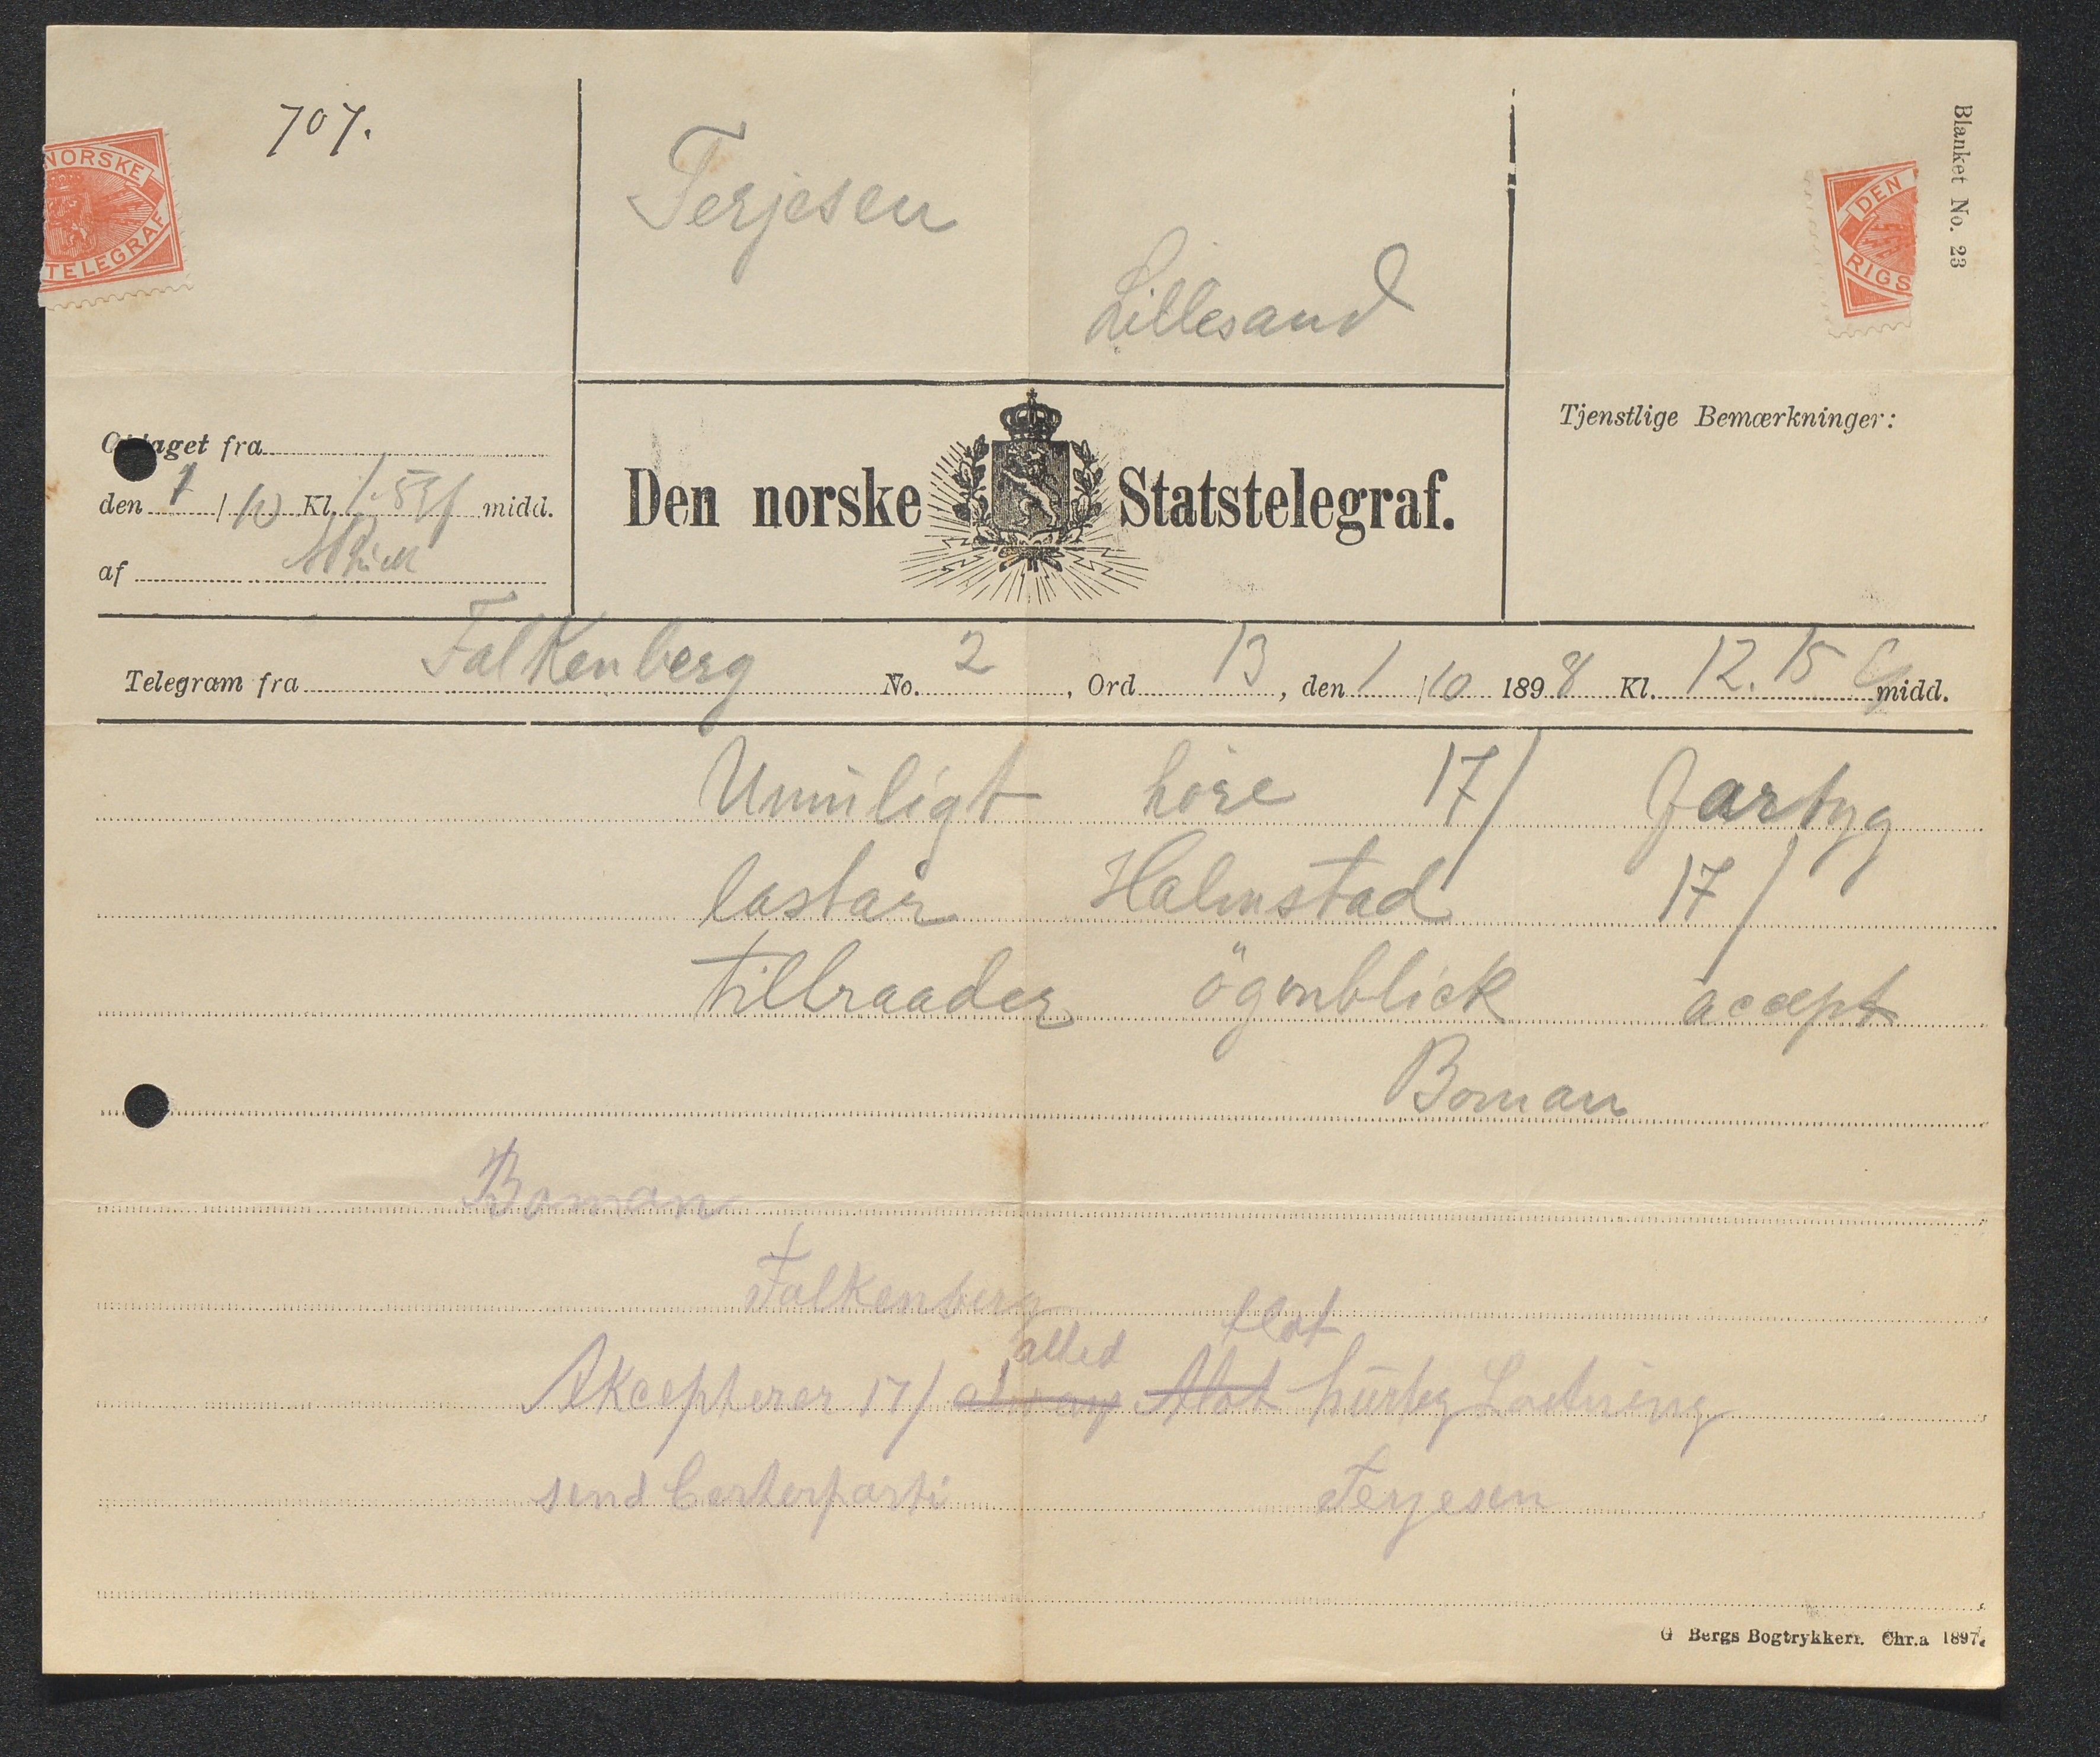 707.
NORSKE
TELEGRAF
Terjesen
Lillesand
DEN
RIGS
Blanket No. 23
Tjenstlige Bemærkninger:
Optaget fra
den 1/10 Kl. 1.59 f midd.
af
Den norske Statstelegraf.
Telegram fra Falkenberg No. 2, Ord 13, den 1/10 1898 Kl. 12.15 midd.
Umuligt höre 17/ fartyg
lastar Halmstad 17/
tillraader ögonblick accept
Boman
Boman
Falkenberg
alled flot
Akcepterer 17/ flot hurtig Lastning
send Certerparti Terjesen
G Bergs Bogtrykkeri. Chr.a 1897.